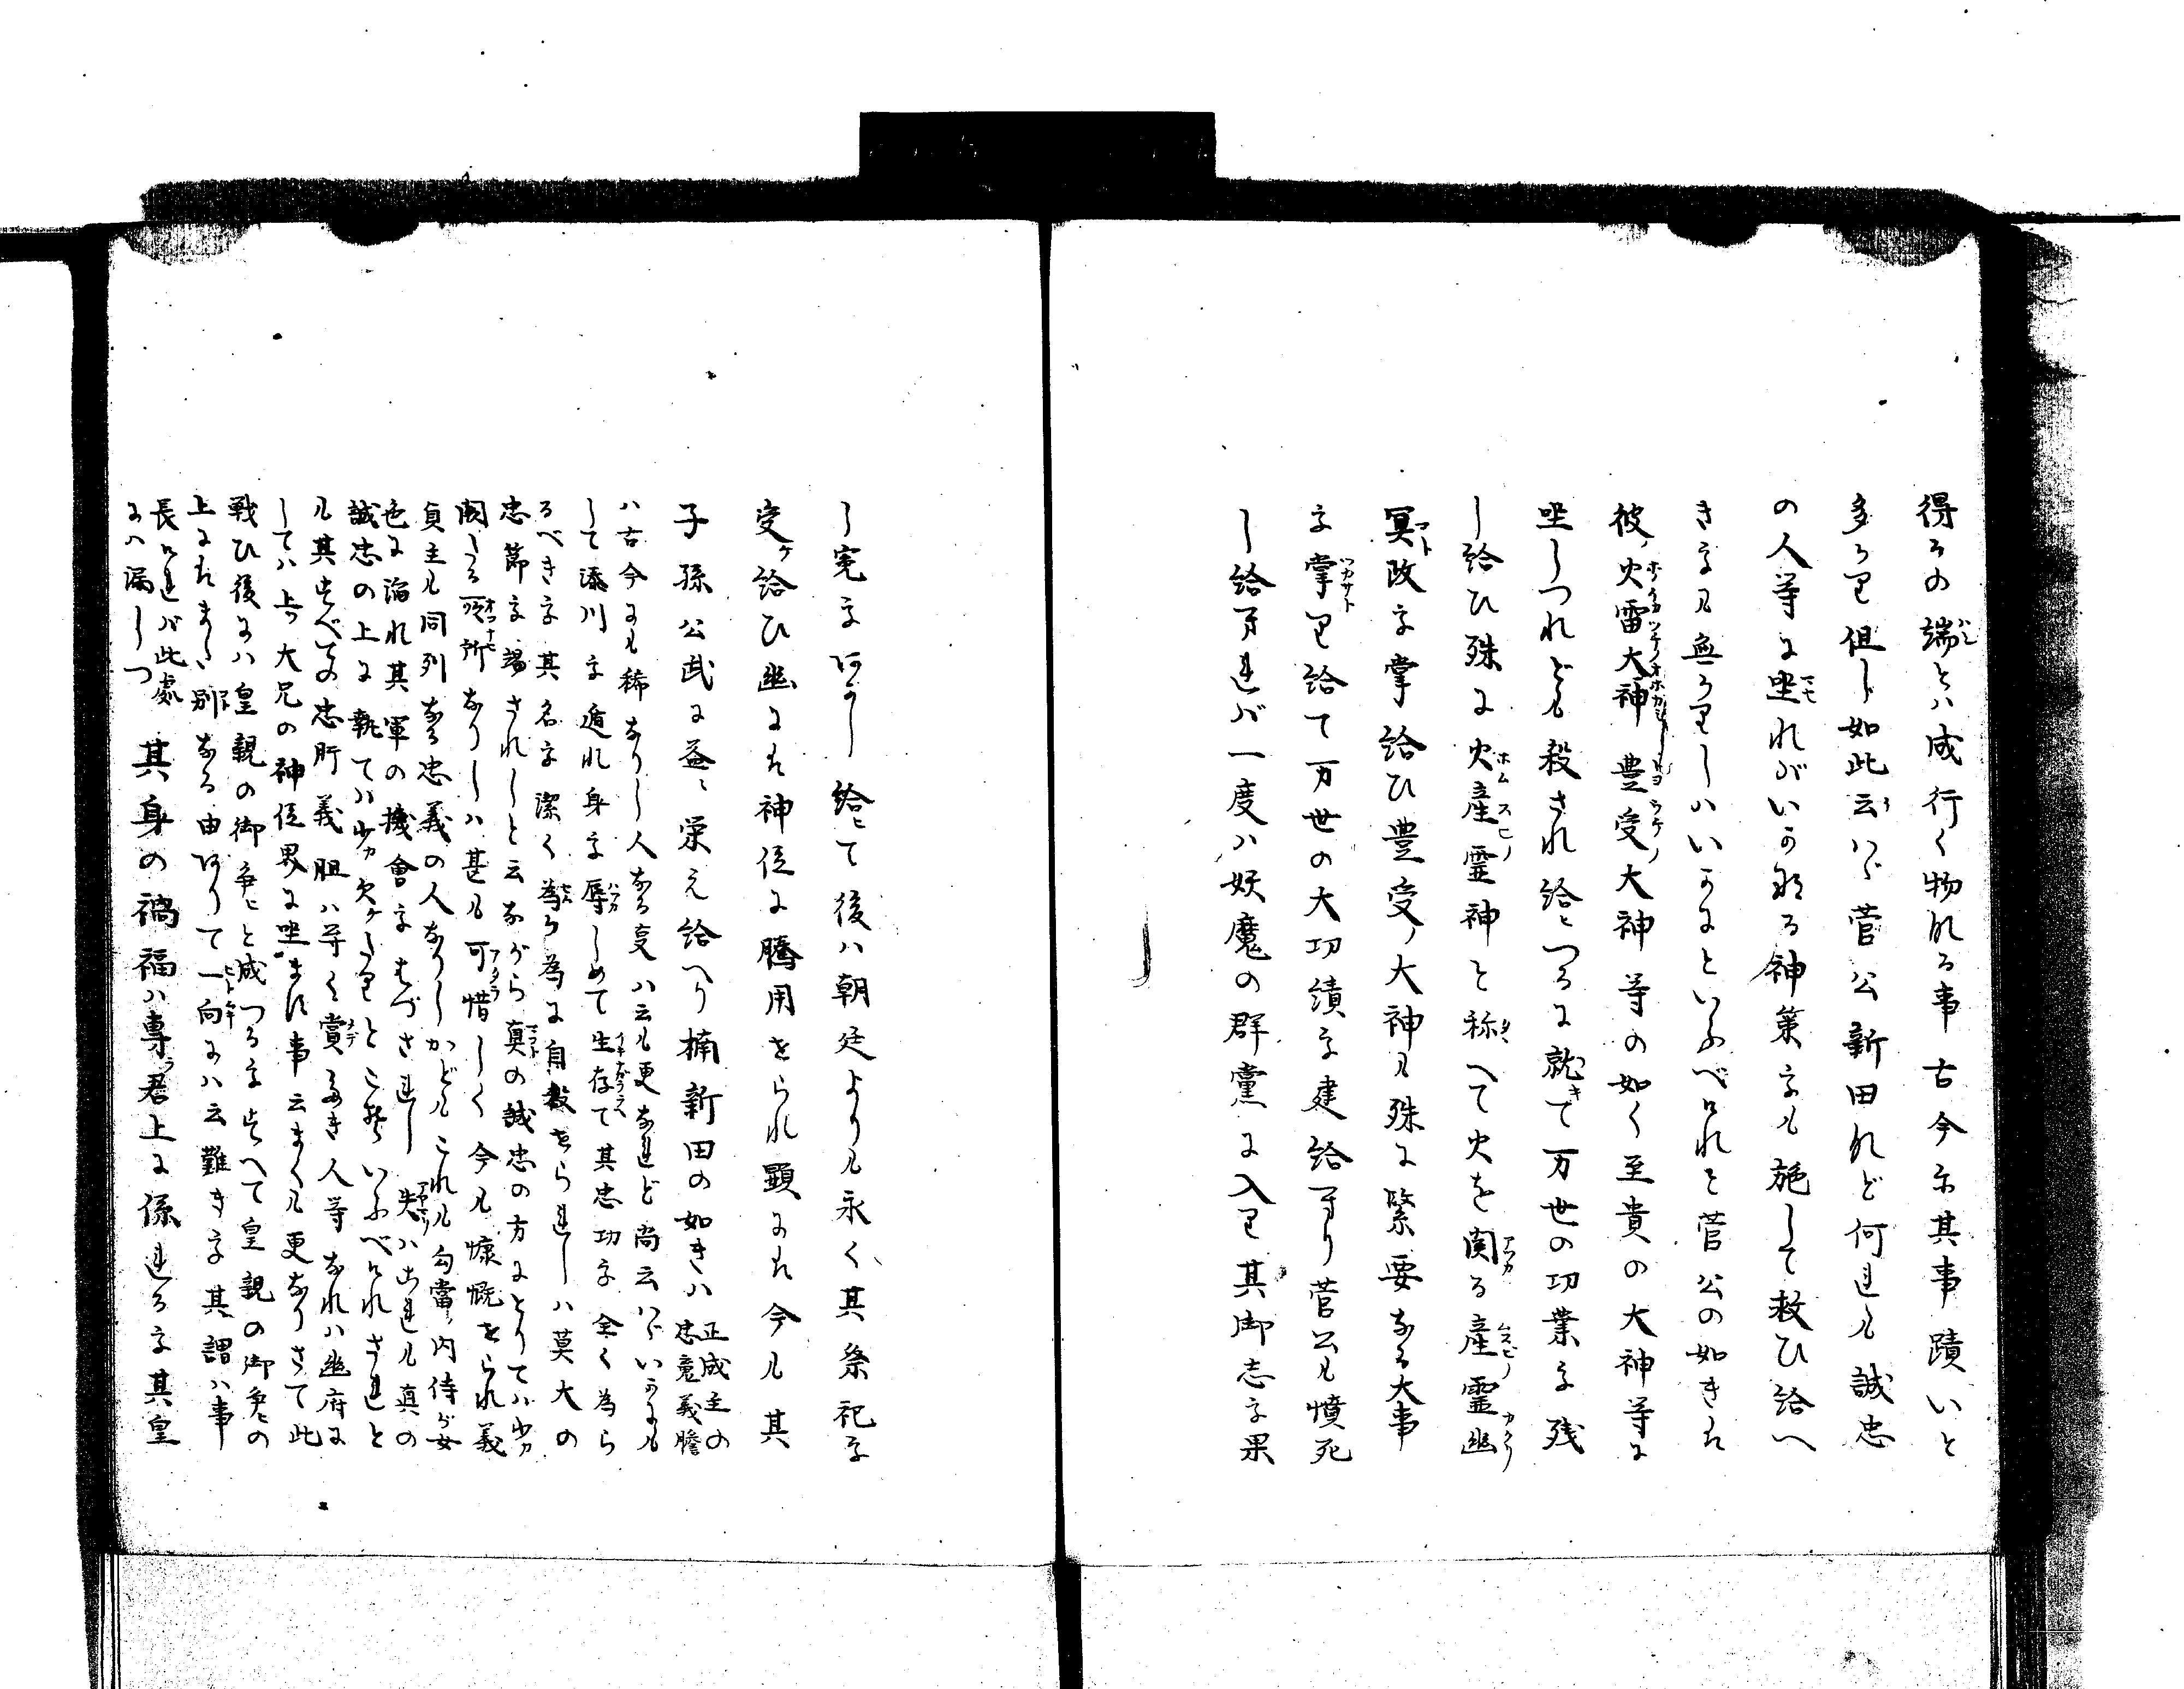 得るの端とハ成行く物なる事古今に其事蹟いと
多かり但し如此云ハゞ菅公新田など何れも誠忠
の人等に坐れバいか部る神策をも施して救ひ給へ
きをも無かりしハいかにといふべけれと菅公の如きハ
彼ノ火雷大神豊受ノ大神等の如く至貴の大神等に
坐しつれども殺され給ヒつるに就きて万世の功業を残
し給ひ殊に火産霊神と称へて火を関る産霊幽
冥政を掌給ひ豊受ノ大神も殊に緊要なる大事
を掌り給て万世の大功績を建給へり菅公も憤死
し給ヘれバ一度ハ妖魔の群黨に入り其御志を果
し寃をはらし給ヒて後ハ朝廷よりも永く其祭祀を
受ケ給ひ幽にハ神位に騰用せられ顕にハ今も其
子孫公武に益々栄え給へり楠新田の如きハ正成主の忠魂義膽
ハ古今にも稀なりし人なる事ハ云も更なれど尚云ハゞいかにも
して湊川を遁れ身を辱しめて生存て其忠功を全く為ら
るべきを其名を潔く為る為に自殺せられしハ莫大の
忠節を竭されしと云ながら真の誠忠の方にとりてハ少カ
闕しる所なりしハ甚も可惜しく今も慷慨せられ義
貞主も同列なる忠義の人なりしかどもこれも勾當ノ内侍が女
色に溺れ其軍の機會をはづされし失ハこれも真の
誠忠の上に執てハ少カ欠ケたりとこそいふべけれされと
も其すべての忠肝義胆ハ等く賞すべき人等なれハ幽府に
してハ上ツ大兄の神位界に坐ます事云まくも更なりさて此
戦ひ後にハ皇親の御争ヒと成つるをすへて皇親の御争ヒの
上にハまた別なる由ありて一向にハ云難きを其謂ハ事
長けれバ此處にハ漏しつ其身の禍福ハ専ラ君上に係れるを其皇